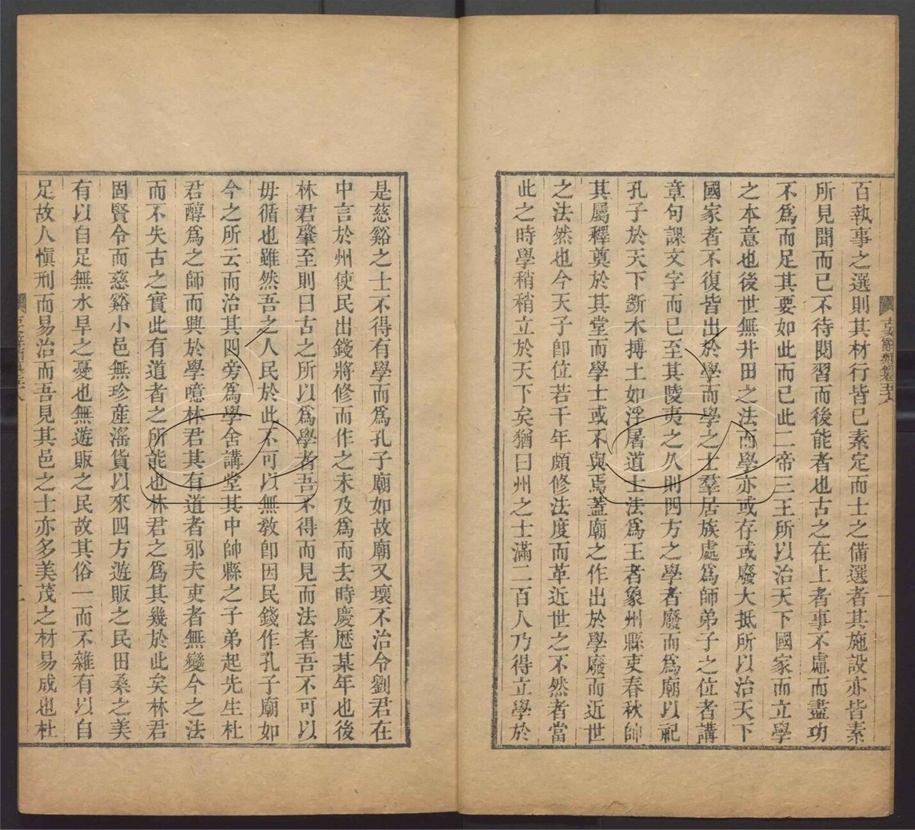 百執事之選則其材行皆已素定而士之備選者其施設亦皆素
所見聞而已不待閱習而後能者也古之在上者事不慮而盡功
不爲而足其要如此而已此二帝三王所以治天下國家而立學
之本意也後世無井田之法而學亦或存或廢大抵所以治天下
國家者不復皆出於學而學之士羣居族處爲師弟子之位者講
章句課文字而已至其陵夷之久則四方之學者廢而爲廟以祀
孔子於天下斲木摶土如浮屠道士法爲王者象州縣吏春秋帥
其屬釋奠於其堂而學士或不與焉蓋廟之作出於學廢而近世
之法然也今天子卽位若干年頗修法度而革近世之不然者當
此之時學稍稍立於天下矣猶曰州之士滿二百人乃得立學於
是慈谿之士不得有學而爲孔子廟如故廟又壞不治令劉君在
中言於州使民出錢將修而作之未及爲而去時慶歷某年也後
林君肇至則曰古之所以爲學者吾不得而見而法者吾不可以
毋循也雖然吾之人民於此不可以無敎卽因民錢作孔子廟如
今之所云而治其四旁爲學舍講堂其中帥縣之子弟起先生杜
君醇爲之師而興於學噫林君其有道者邪夫吏者無變今之法
而不失古之實此有道者之所能也林君之爲其幾於此矣林君
固賢令而慈谿小邑無珍産滛貨以來四方遊販之民田桑之美
有以自足無水旱之憂也無遊販之民故其俗一而不雜有以自
足故人愼刑而易治而吾見其邑之士亦多美茂之材易成也杜